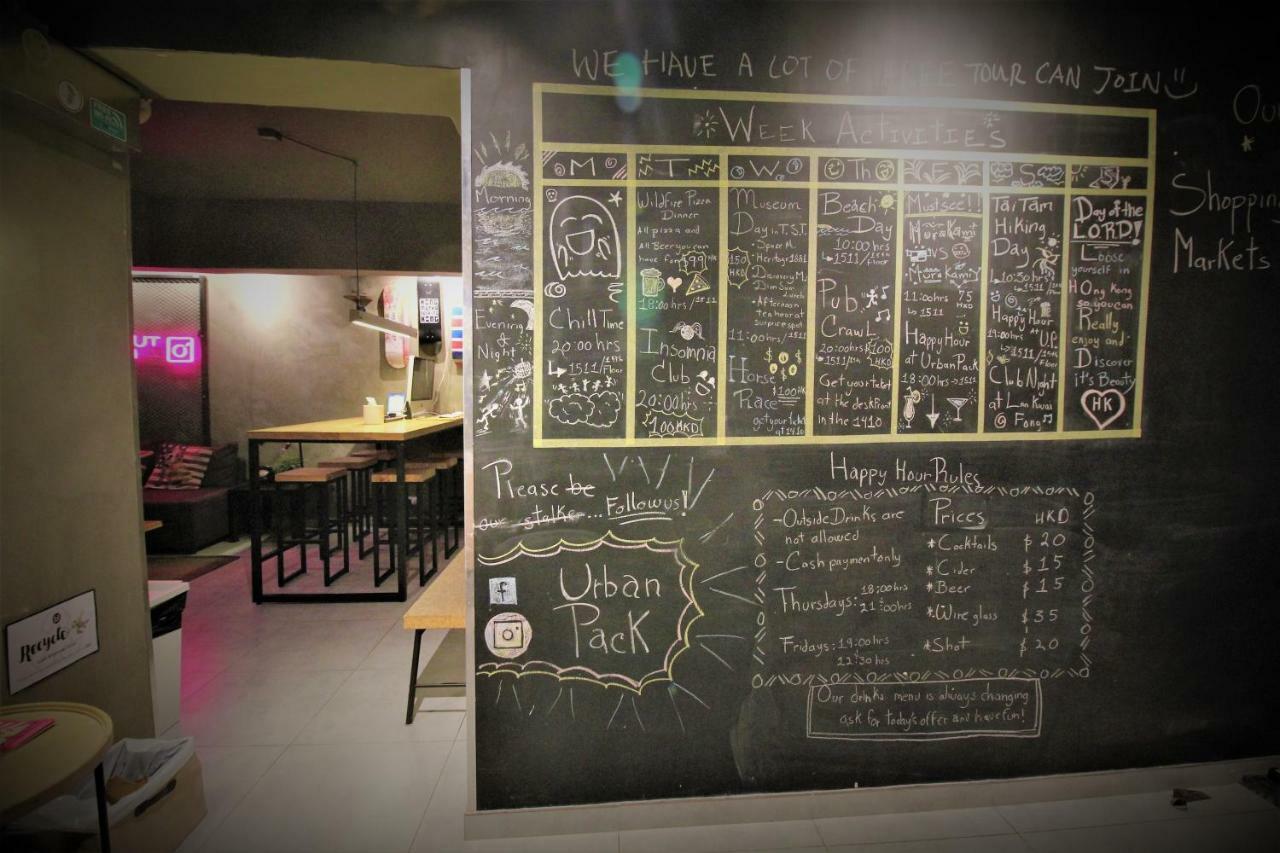 WE HAVE A LOT OF FREE TOUR CAN JOIN
WEEK ACTIVITIE'S
M
T
W
Th
F
S
S
Morning
Evening
&
Night
Chill Time
20:00 hrs
↳ 1511/Floor
Wildfire Pizza
Dinner
All pizza and
All Beer you can
have for $99 HK
18:00hrs/1511
Insomnia
Club
20:00hrs
100HKD
Museum
Day in T.S.T.
• Space M.
• Heritage 1881
150 HKD
• Discovery M.
• Dim Sum
Lunch
• Afternoon
tea hour at
surprise spot
11:00hrs/1511
Horse
Race
$100HK
get your ticket
at 1410
Beach
Day
10:00hrs
↳ 1511/15th Floor
Pub
Crawl
20:00hrs $100 HKD
↳1511/15th
Get your ticket
at the desk front
in the 1410
Must see!!
Murakami
vs
Murakami
11:00hrs 75 HKD
↳ 1511
Happy Hour
at Urban Pack
18:00hrs→1511
Tai Tam
Hiking
Day
↳10:30hrs
↳1511/15th Floor
Happy Hour
19:00hrs U.P.
↳1511/15th Floor
Club Night
at Lan Kwai
Fong
Day of the
LORD!
Loose
yourself in
HOng Kong
so you can
Really
enjoy and
Discover
it's Beauty
HK
Our
Shopping
Markets
OUT
Please be
our stalke... Follow us!
f
Urban
Pack
Happy Hour Rules
-Outside Drinks are
not allowed
-Cash payment only
Thursdays: 18:00hrs
21:00hrs
Fridays: 19:00hrs
22:30hrs
Prices HKD
*Cocktails $20
*Cider $15
*Beer $15
*Wine glass $35
*Shot $20
Our drinks menu is always changing
ask for today's offer and have fun!
Recycle